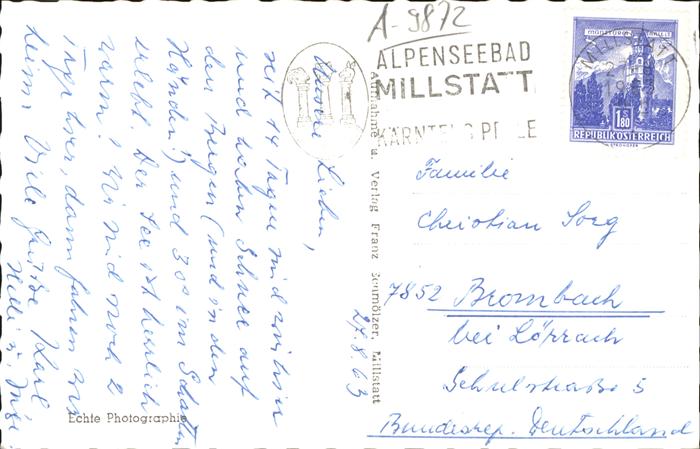 A-9872
ALPENSEEBAD
MILLSTATT
KÄRNTENS PERLE
MILLSTATT
MÜNZTURM HALL I. T.
1.80
REPUBLIK ÖSTERREICH
Unsere Lieben,
seit 14 Tagen sind wir hier
und haben Schnee auf
den Bergen (und in den
Händen!) und 30° im Schatten
erlebt. Der See ist herrlich
warm! Wir sind noch 2
Tage hier, dann fahren wir
heim. Viele Grüße Karl
27.8.63
Aufnahme u. Verlag Franz Schmölzer, Millstatt
Echte Photographie
Familie
Christian Sorg
7852 Brombach
bei Lörrach
Schulstraße 5
Bundesrep. Deutschland